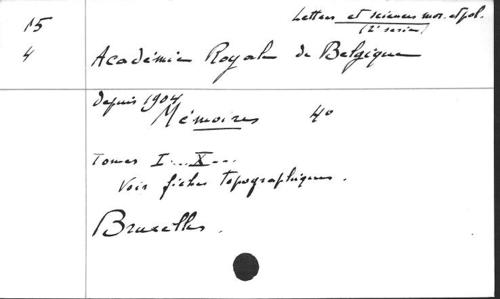 15
4
Lettres et sciences mor. et pol.
(2e serie)
Académie Royale de Belgique
depuis 1904
Mémoires 4o
Tomes I...X...
Voir fiches topographiques.
Bruxelles.